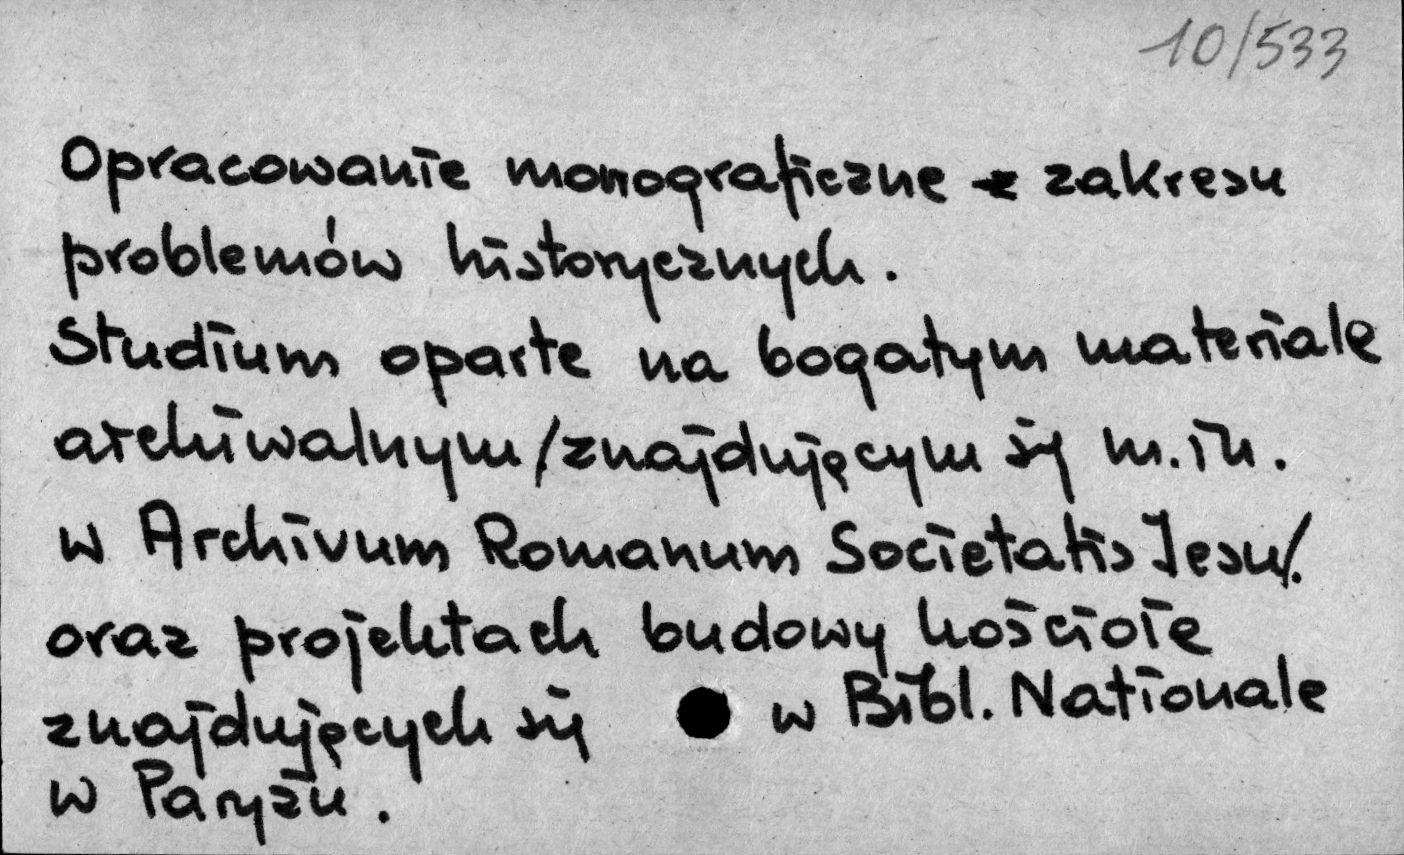 10/533
Opracowanie monograficzne z zakresu
problemów historycznych.
Studium oparte na bogatym materiale
archiwalnym /znajdującym się m.in.
w Archivum Romanum Societatis Jesu/.
oraz projektach budowy kościołe
znajdujących się w Bibl. Nationale
w Paryżu.